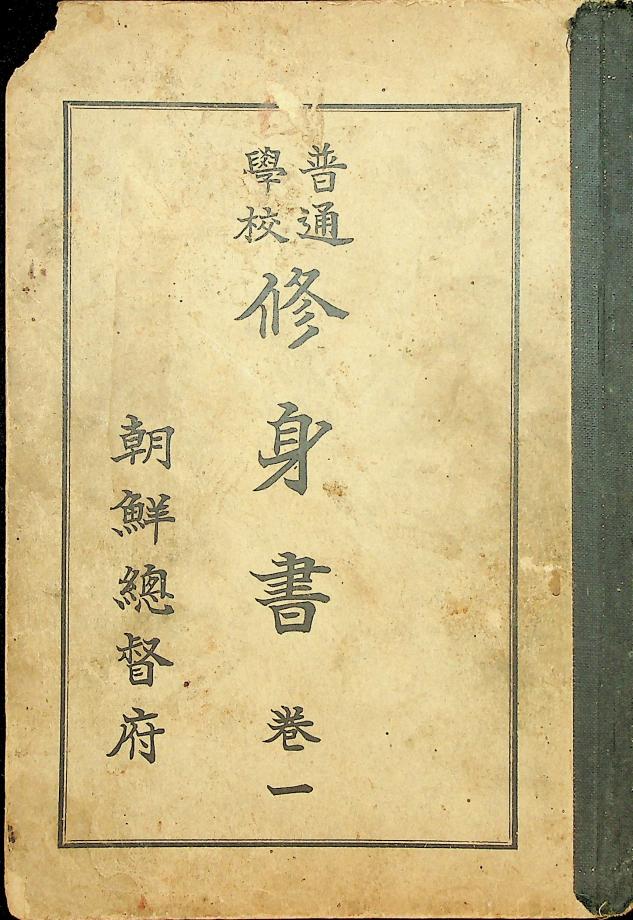 普通學校
修身書 卷一
朝鮮總督府